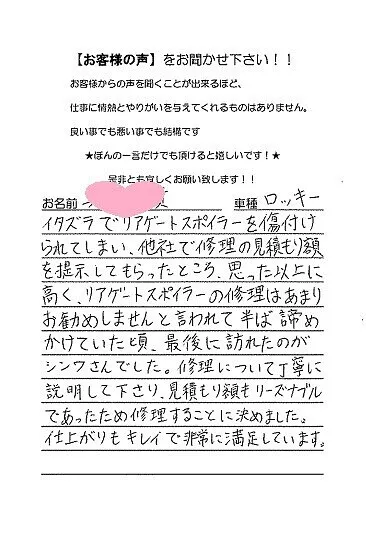 【お客様の声】をお聞かせ下さい！！
お客様からの声を聞くことが出来るほど、
仕事に情熱とやりがいを与えてくれるものはありません。
良い事でも悪い事でも結構です
★ほんの一言だけでも頂けると嬉しいです！★
是非とも宜しくお願い致します！！
お名前 車種 ロッキー
イタズラでリアゲートスポイラーを傷付け
られてしまい、他社で修理の見積もり額
を提示してもらったところ、思った以上に
高く、リアゲートスポイラーの修理はあまり
お勧めしませんと言われて半ば諦め
かけていた頃、最後に訪れたのが
シンワさんでした。修理について丁寧に
説明して下さり、見積もり額もリーズナブル
であったため修理することに決めました。
仕上がりもキレイで非常に満足しています。